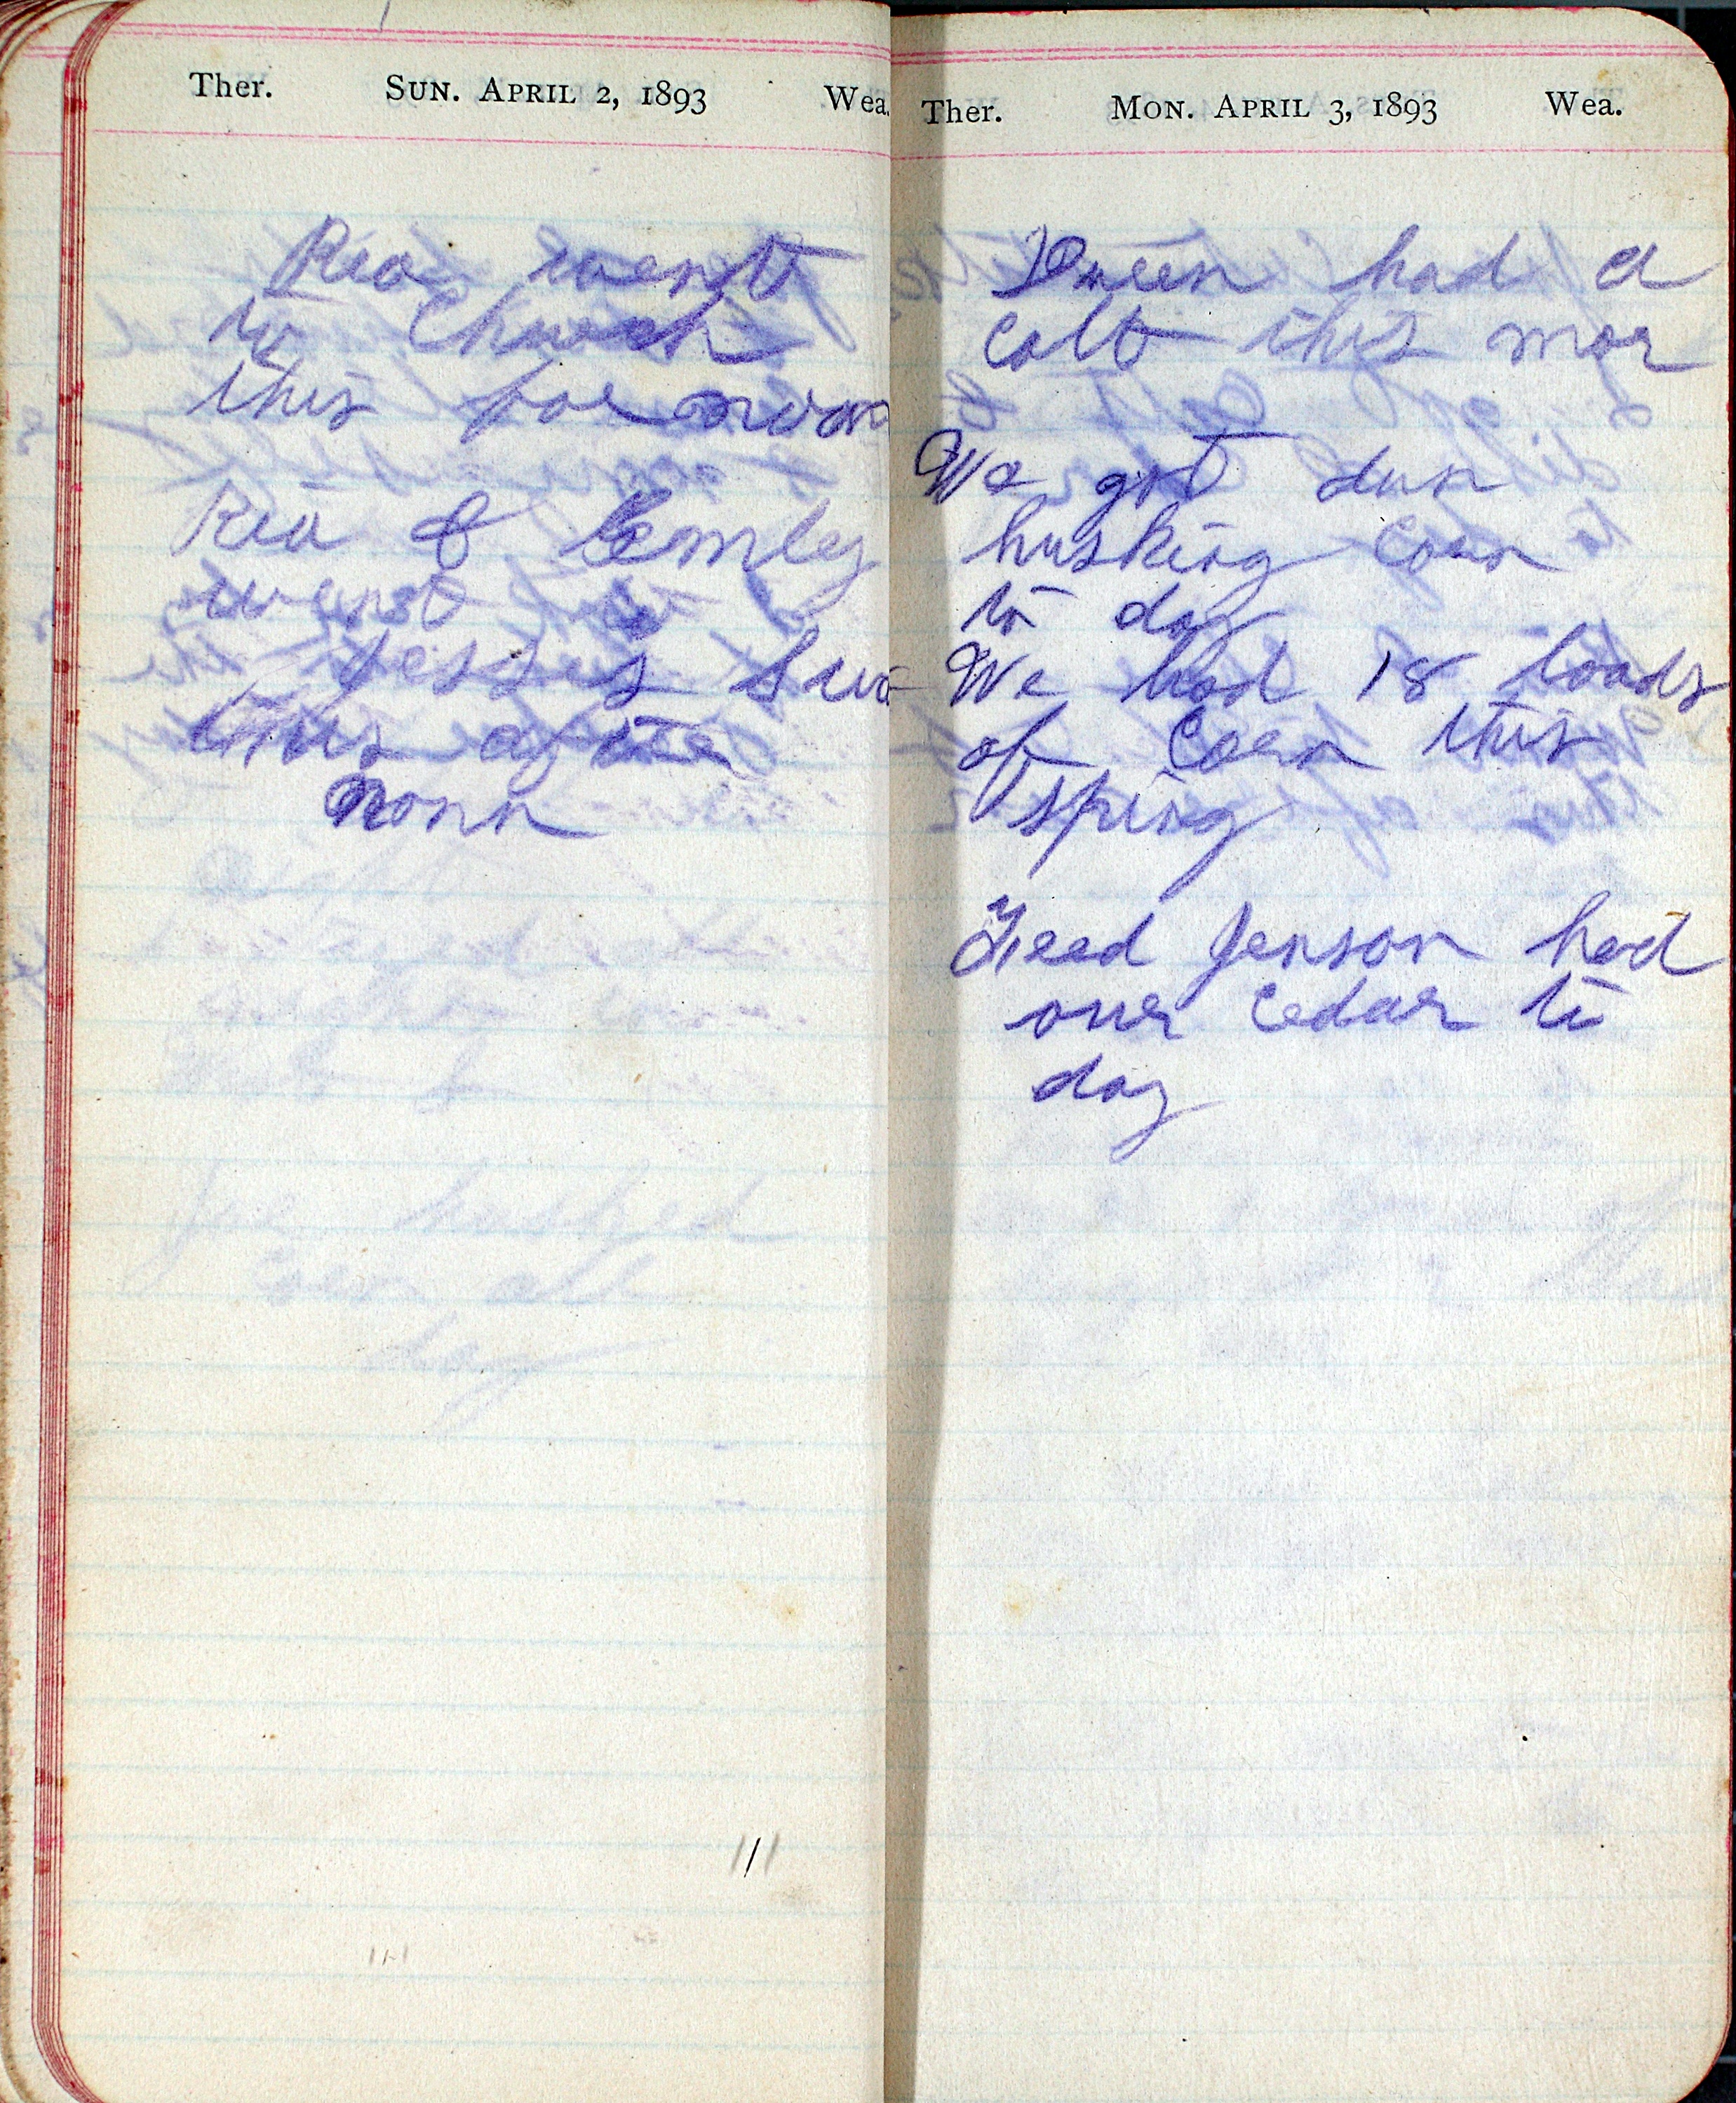 Ther. SUN. APRIL 2, 1893 Wea.
Rea went
to Church
this for noon
Rea & Emley
went to
Jesses
this after
nonn
Ther. MON. APRIL 3, 1893 Wea.
Queen had a
Colt this mor
We got dun
husking Corn
to day
We had 18 loads
of Corn this
spring
Freed Jenson had
our Cedar to
day